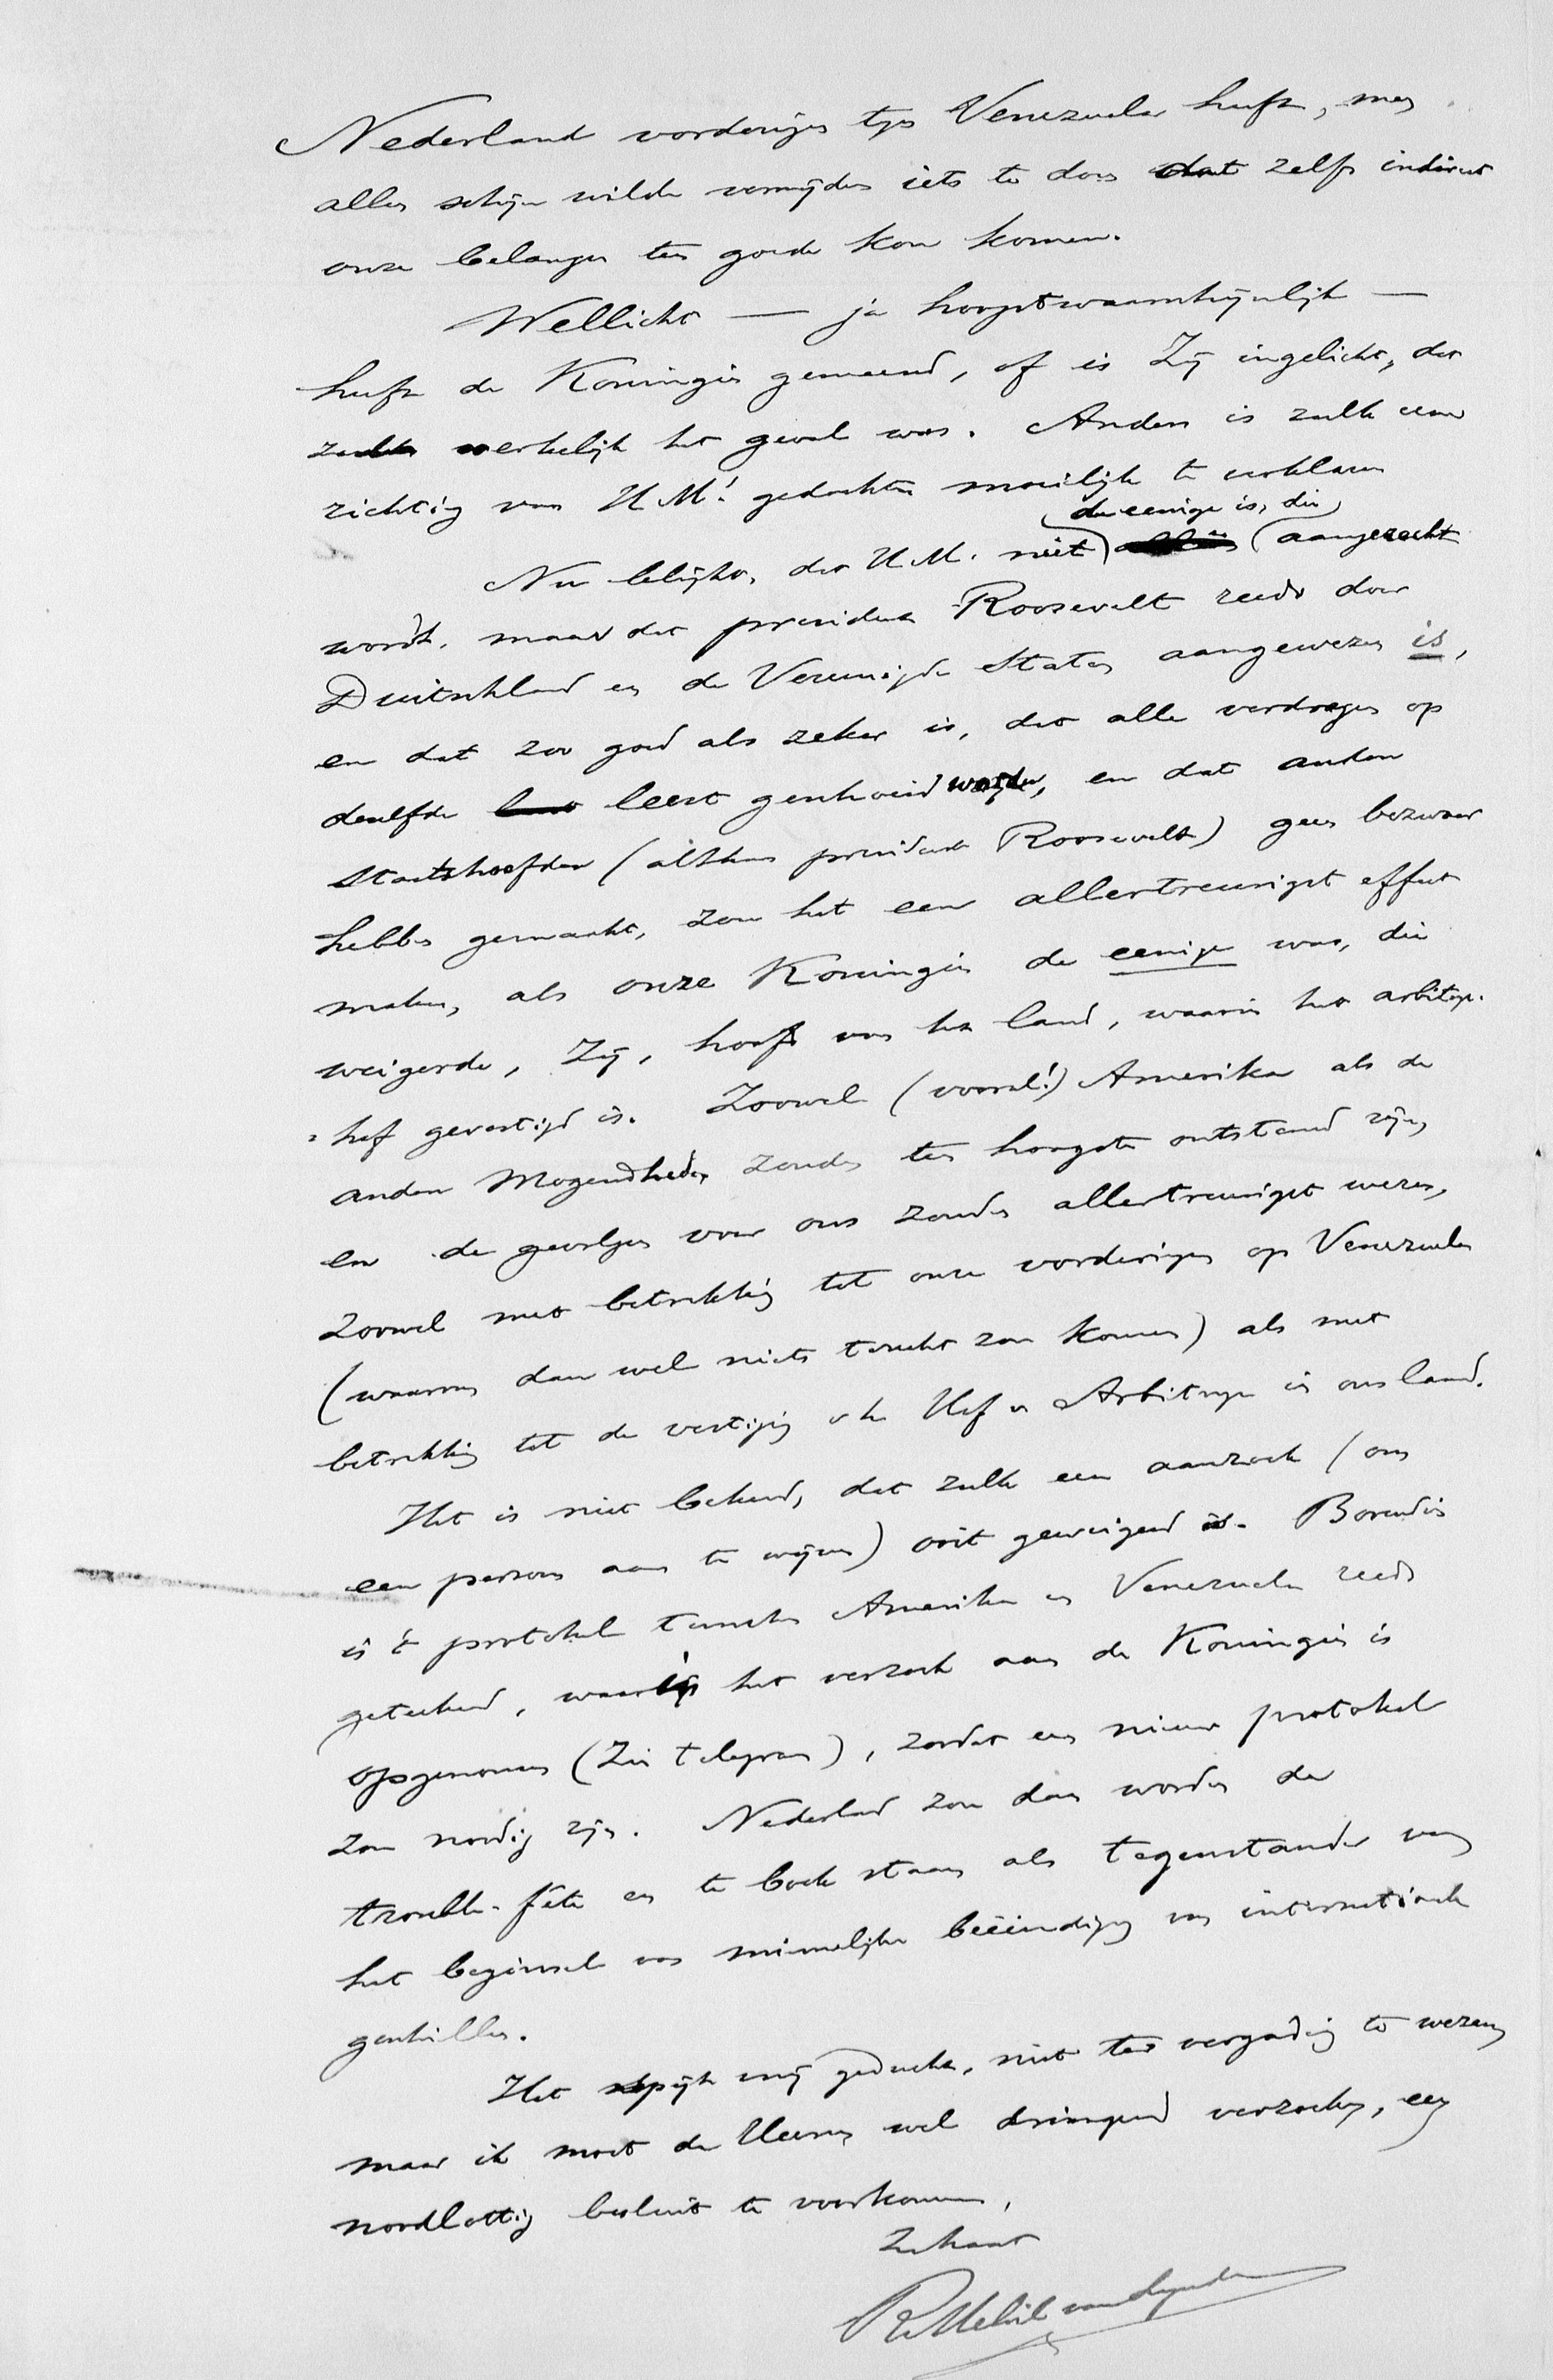 Nederland vorderingen tgn Venezuela heeft, men
allen schijn wilde vermijden iets te doen dat zelfs indirect
onze belangen ten goede kon komen.
Wellicht — ja hoogstwaarschijnlijk —
heeft de Koningin gemeend, of is Zij ingelicht, dat
zulks werkelijk het geval was. Anders is zulk een
richting van H.M.'s gedachten moeilijk te verklaren
Nu blijkt, dat H.M. niet (de eenige is, die) aangezocht
wordt, maar dat president Roosevelt reeds door
Duitschland en de Vereenigde Staten aangewezen is,
en dat zoo goed als zeker is, dat alle verdragen op
denzelfde leest geschoeid worden, en dat andere
Staatshoofden (althans president Roosevelt) geen bezwaar
hebben gemaakt, zou het een allertreurigst effect
maken, als onze Koningin de eenige was, die
weigerde, Zij, hoofd van het land, waarin het arbitrage-
hof gevestigd is. Zoowel (vooral!) Amerika als de
andere Mogendheden zouden ten hoogste ontstemd zijn,
en de gevolgen voor ons zouden allertreurigst wezen,
zoowel met betrekking tot onze vorderingen op Venezuela
(waarvan dan wel niets terecht zou komen) als met
betrekking tot de vestiging v. h. Hof v. Arbitrage in ons land.
Het is niet bekend, dat zulk een aanzoek (om
een persoon aan te wijzen) ooit geweigerd is. Bovendien
is 't protokol tusschen Amerika en Venezuela reeds
geteekend, waarin het verzoek aan de Koningin is
opgenomen (Zie telegram), zoodat een nieuw protokol
zou noodig zijn. Nederland zou dan worden de
trouble-fête en te boek staan als tegenstander van
het beginsel van minnelijke beëindiging van internationale
geschillen.
Het spijt mij geducht, niet ter vergadering te wezen,
maar ik moet de Heeren wel dringend verzoeken, een
noodlottig besluit te voorkomen,
R Melvil van Lynden